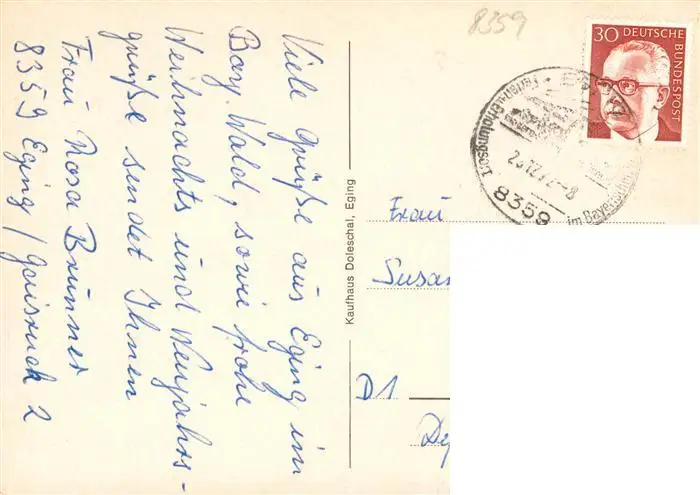 Viele Grüße aus Eging im
Bay. Wald, sowie frohe
Weihnachts und Neujahrs-
grüße sendet Ihnen
Frau Rosa Brunner
8359 Eging / Gaisruck 2
Kaufhaus Doleschal, Eging
8359
30 DEUTSCHE
BUNDESPOST
Ferien- u. Erholungsort
-8
8359
im Bayerischen
Frau
Susan
D1